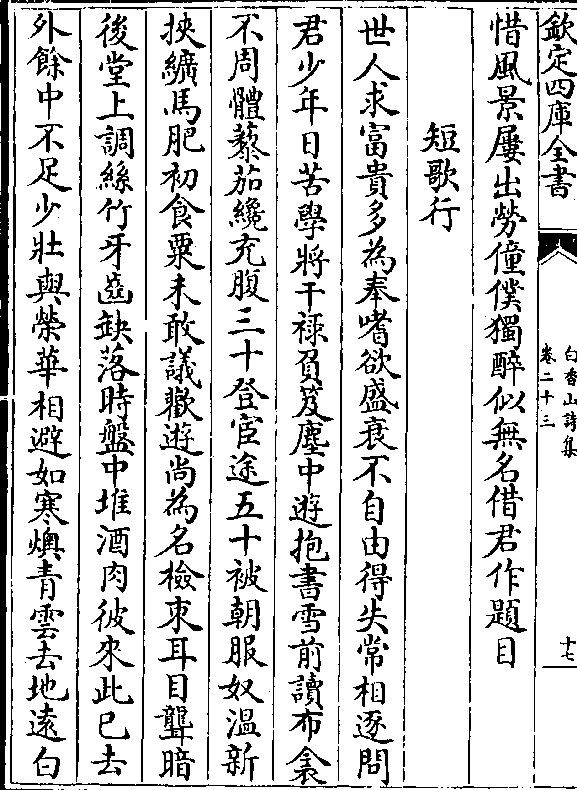 欽定四庫全書
白香山詩集
卷二十三
十七
惜風景屢出勞僮僕獨醉似無名借君作題目
短歌行
世人求富貴多為奉嗜欲盛衰不自由得失常相逐問
君少年日苦學將干祿負笈塵中遊抱書雪前讀布衾
不周體藜茄纔充腹三十登宦途五十被朝服奴溫新
挾纊馬肥初食粟未敢議歡遊尚為名檢束耳目聾暗
後堂上調絲竹牙齒缺落時盤中堆酒肉彼來此已去
外餘中不足少壯與榮華相避如寒燠青雲去地遠白